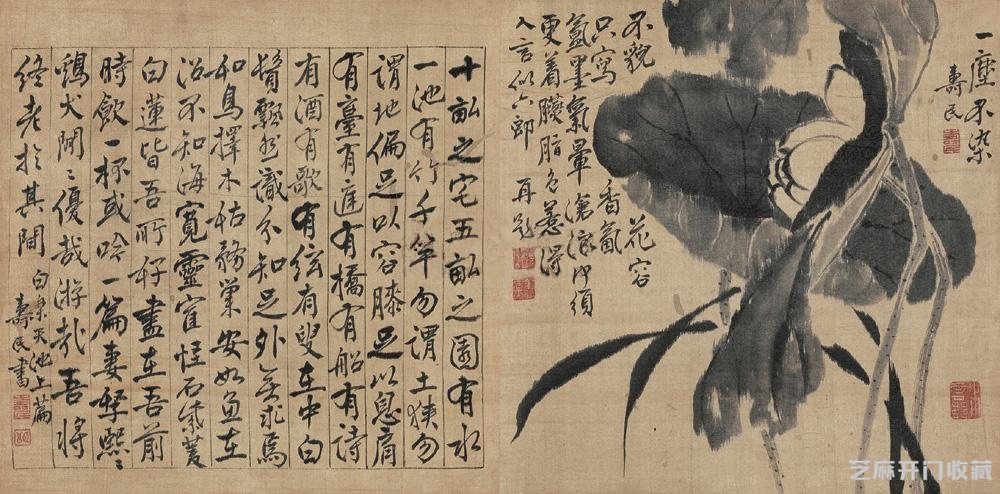 一塵不染
壽民
不貌花容
只寫香氤
氳墨氣暈滄浪何須
更着臙脂色惹得
人言似六郎 再題
十畝之宅五畝之園有水
一池有竹千竿勿謂土狹勿
謂地偏足以容膝足以息肩
有臺有庭有橋有船有詩
有酒有歌有絃有叟在中白
鬚飄然識分知足外無求焉
如鳥擇木姑務巢安如魚在
沼不知海寬靈寉怪石紫菱
白蓮皆吾所好盡在吾前
時飲一杯或吟一篇妻孥熙〻
鷄犬閒〻優哉游哉吾將
終老於其間 白樂天池上篇
壽民書
芝麻开门收藏